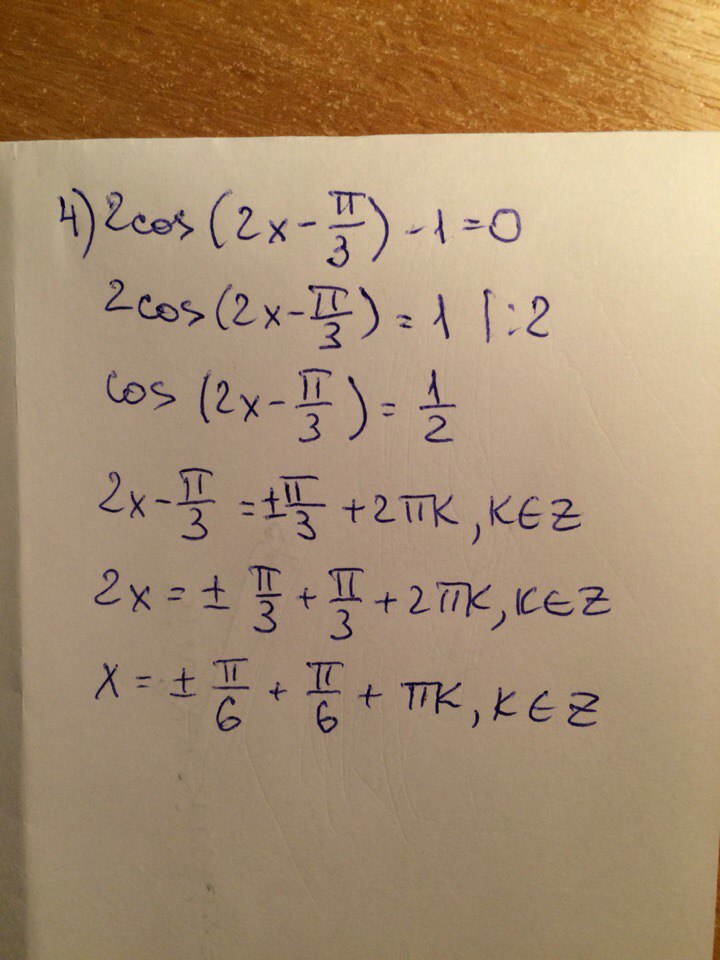 4) 2cos(2x-π/3)-1=0
2cos(2x-π/3)=1 |:2
cos(2x-π/3)=1/2
2x-π/3=±π/3+2πK,K∈Z
2x=±π/3+π/3+2πK,K∈Z
x=±π/6+π/6+πK,K∈Z